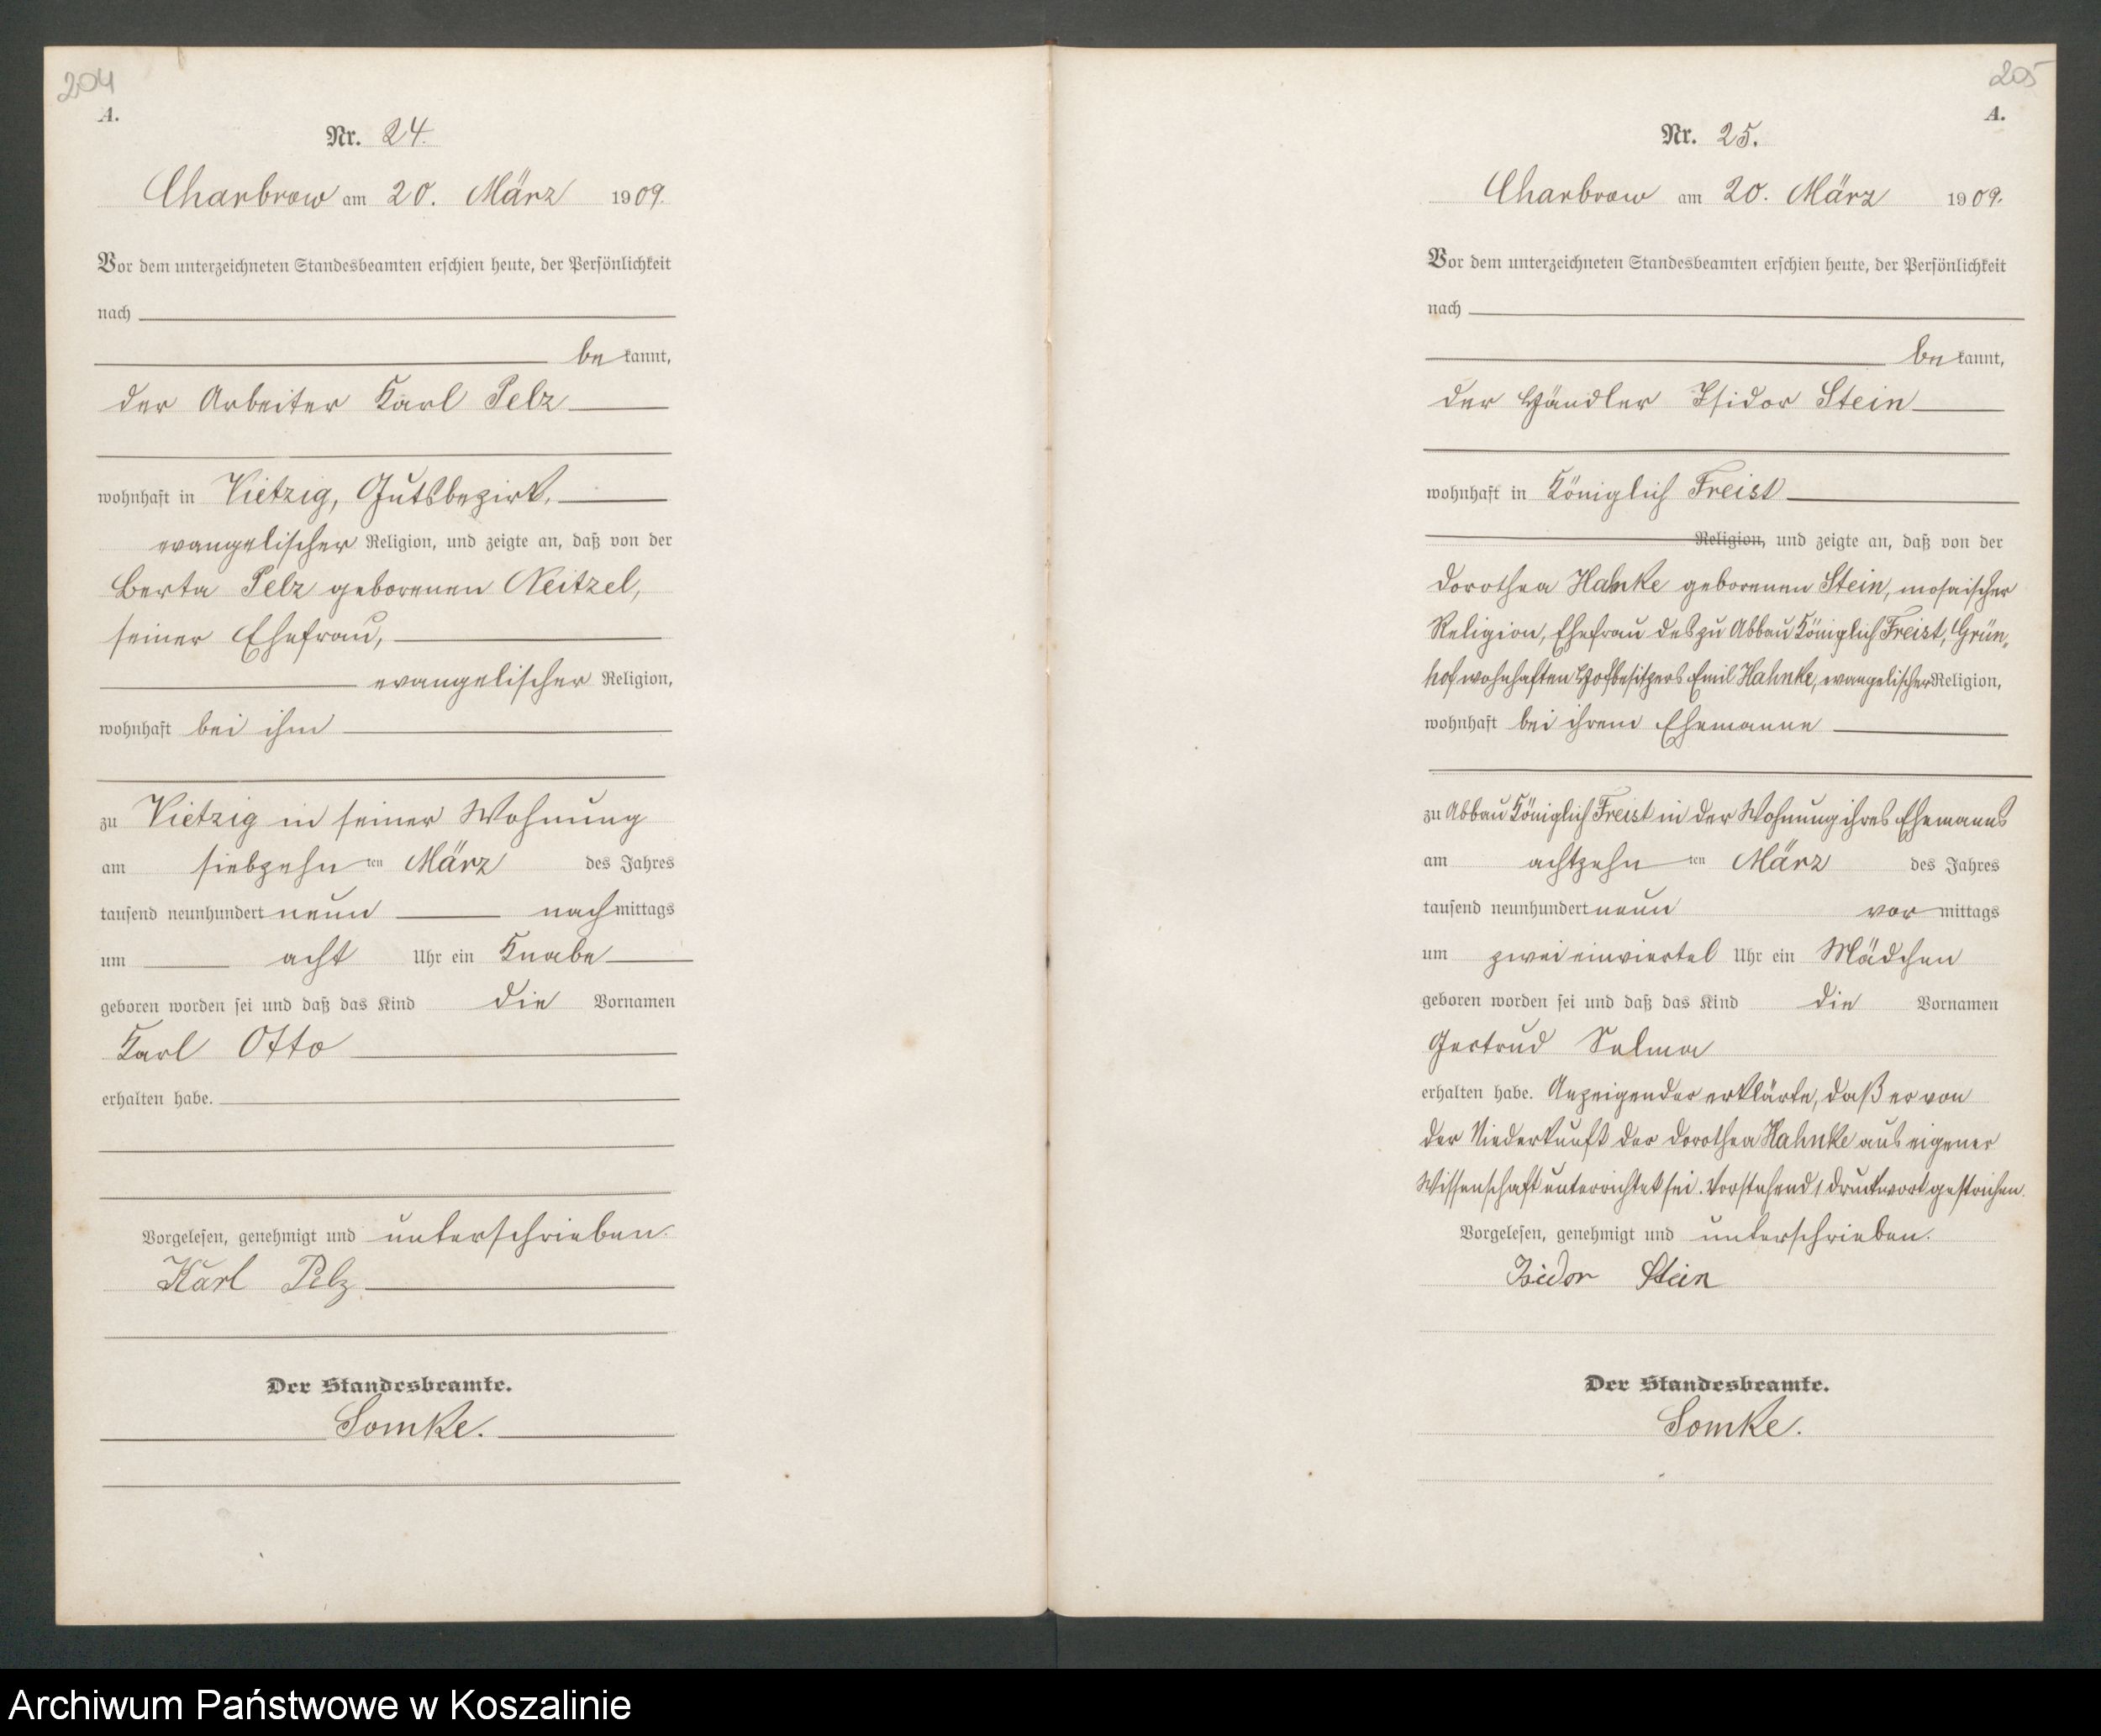 204
A.
Nr. 24.
Charbrow am 20. März 1909.
Vor dem unterzeichneten Standesbeamten erschien heute, der Persönlichkeit
nach
be kannt,
der Arbeiter Karl Pelz
wohnhaft in Vietzig, Gutsbezirk,
evangelischer Religion, und zeigte an, daß von der
Berta Pelz geborenen Neitzel,
seiner Ehefrau,
evangelischer Religion,
wohnhaft bei ihm
zu Vietzig in seiner Wohnung
am siebzehn ten März des Jahres
tausend neunhundert neun nachmittags
um acht Uhr ein Knabe
geboren worden sei und daß das Kind die Vornamen
Karl Otto
erhalten habe.
Vorgelesen, genehmigt und unterschrieben.
Karl Pelz
Der Standesbeamte.
Somke.
205
A.
Nr. 25.
Charbrow am 20. März 1909.
Vor dem unterzeichneten Standesbeamten erschien heute, der Persönlichkeit
nach
be kannt,
der Händler Isidor Stein
wohnhaft in Königlich Freist
Religion, und zeigte an, daß von der
Dorothea Hahnke geborenen Stein, mosaischer
Religion, Ehefrau des zu Abbau Königlich Freist, Grün-
hof wohnhaften Hofbesitzers Emil Hahnke, evangelischer Religion,
wohnhaft bei ihrem Ehemanne
zu Abbau Königlich Freist in der Wohnung ihres Ehemanns
am achtzehn ten März des Jahres
tausend neunhundert neun vor mittags
um zwei einviertel Uhr ein Mädchen
geboren worden sei und daß das Kind die Vornamen
Gertrud Selma
erhalten habe. Anzeigender erklärte, daß er von
der Niederkunft der Dorothea Hahnke aus eigener
Wissenschaft unterrichtet sei. Vorstehend 1 Druckwort gestrichen.
Vorgelesen, genehmigt und unterschrieben.
Isidor Stein
Der Standesbeamte.
Somke.
Archiwum Państwowe w Koszalinie